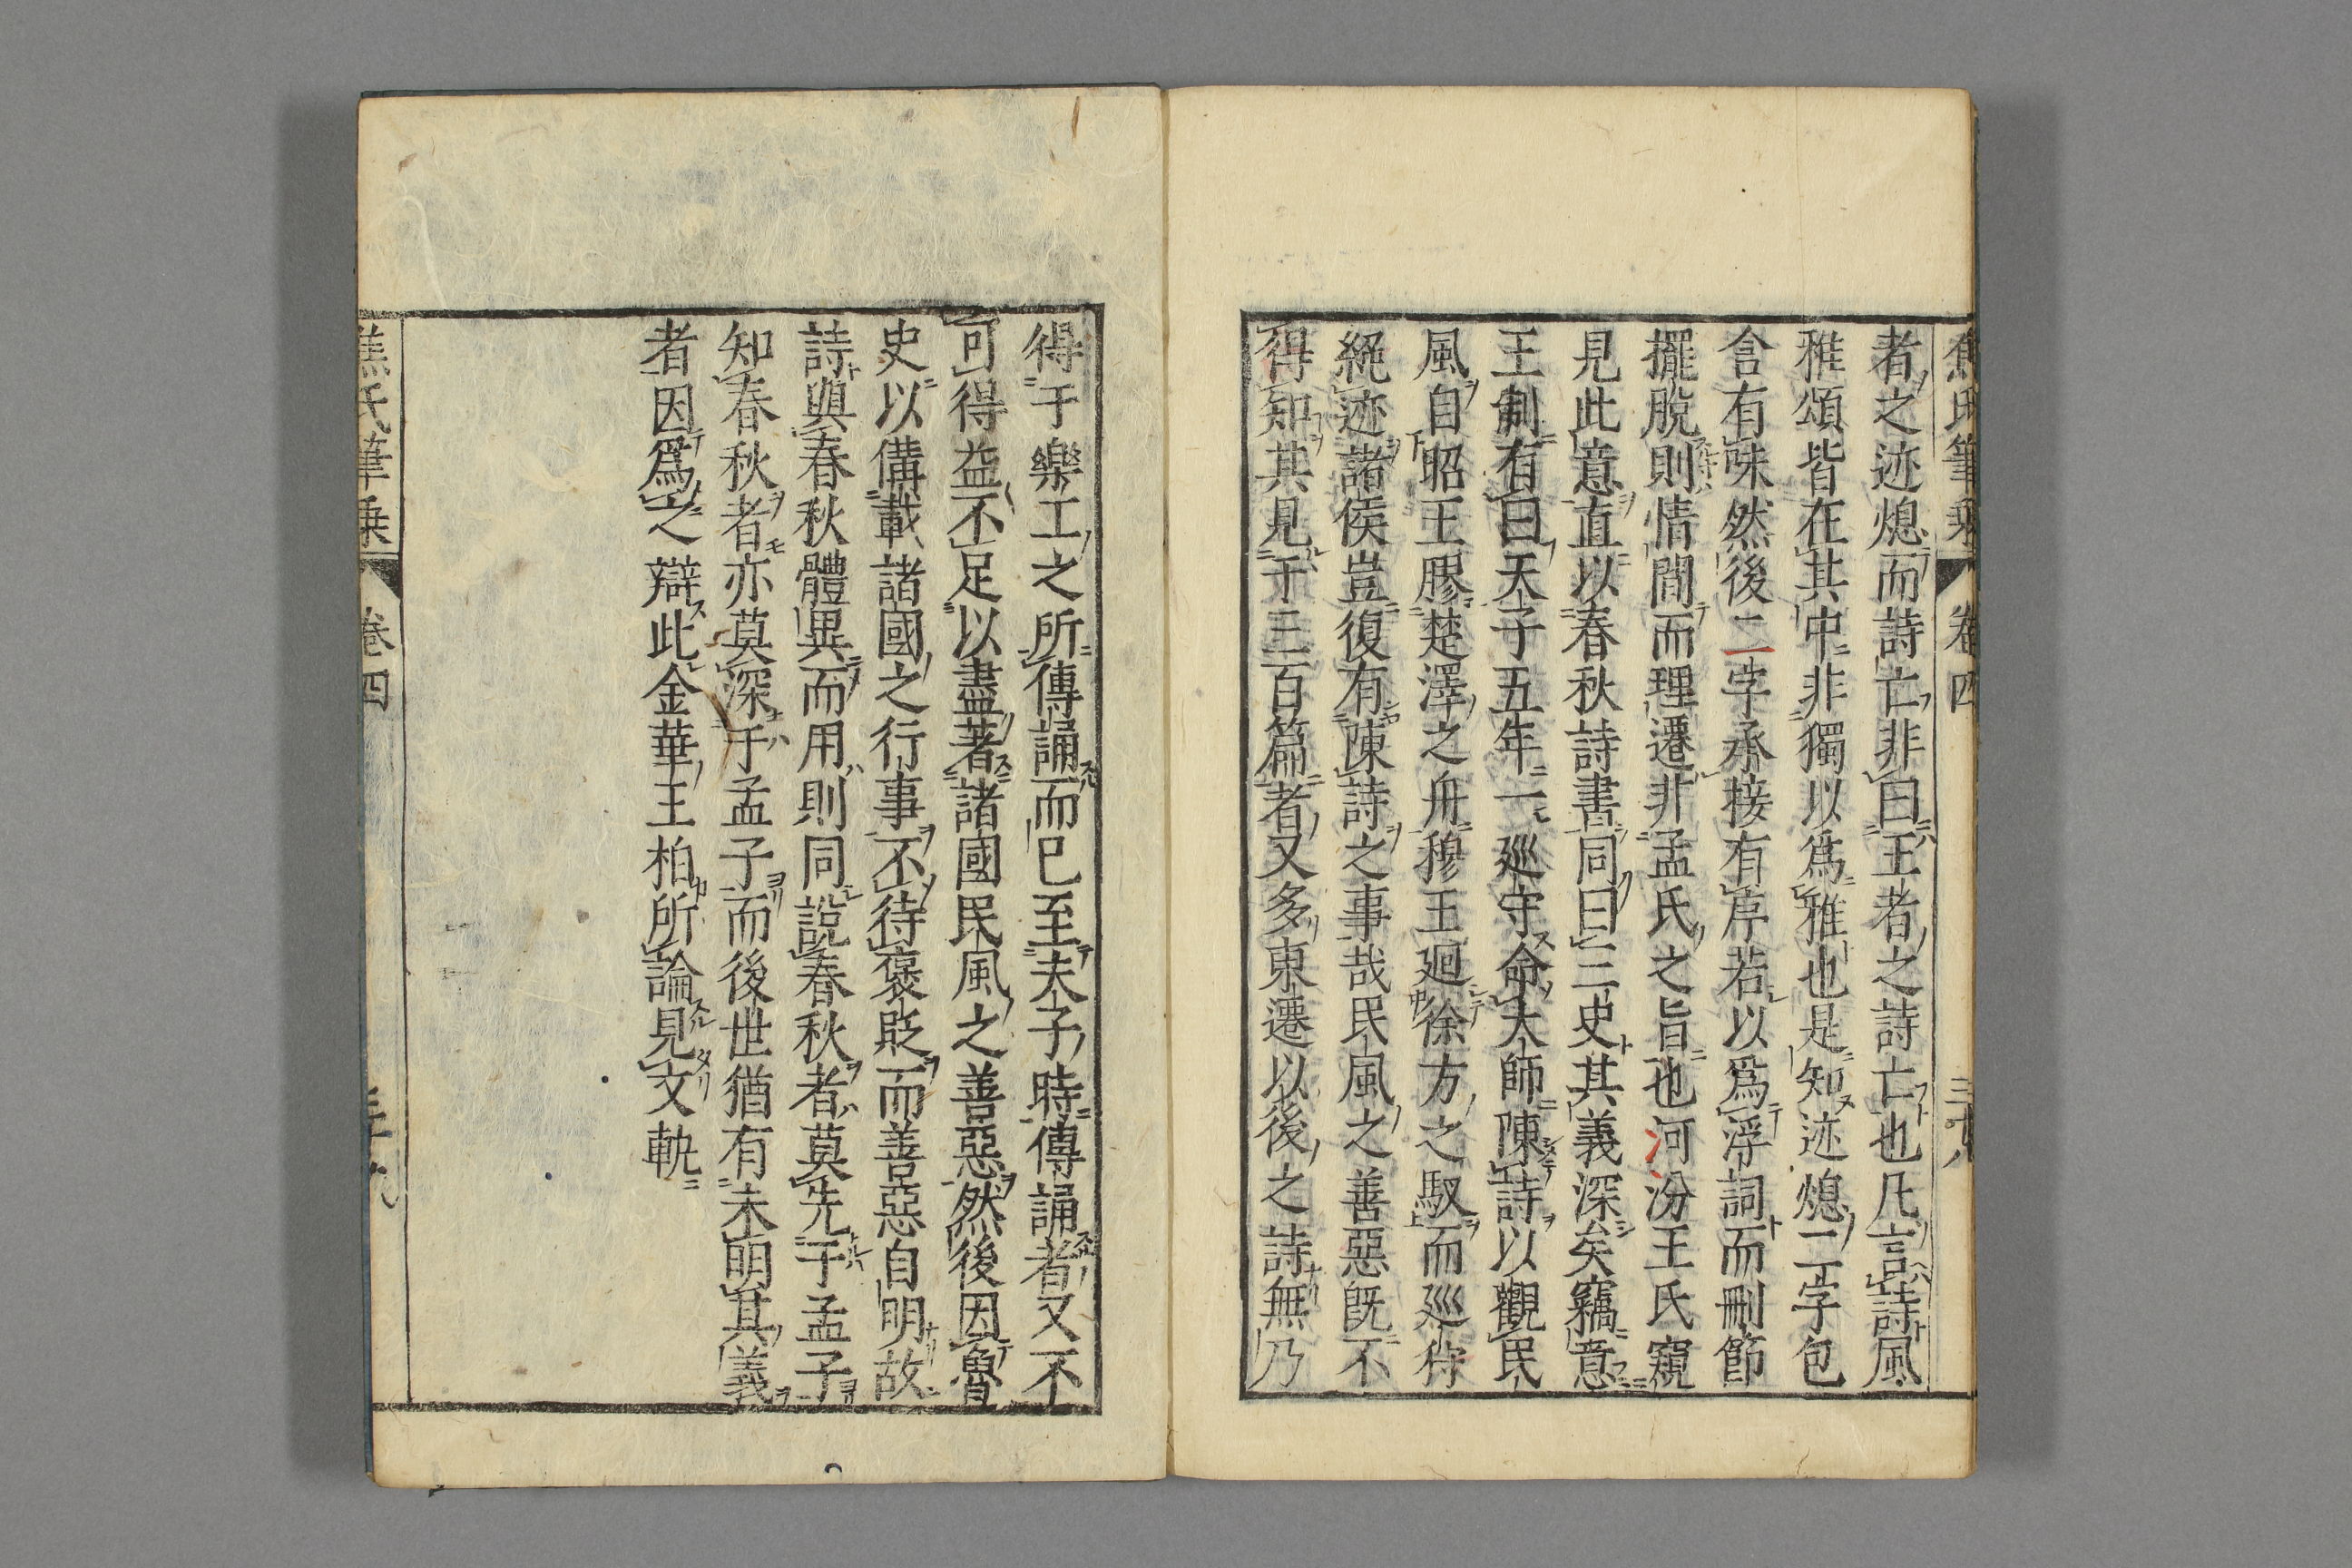 焦氏筆乘 卷四 三十八
者之迹熄而詩亡非曰王者之詩亡也凡言詩風
雅頌皆在其中非獨以爲雅也是知迹熄二字包
含有味然後二字承接有序若以爲浮詞而刪節
擺脫則情間而理遷非孟氏之旨也河汾王氏窺
見此意直以春秋詩書同曰三史其義深矣竊意
王制有曰天子五年一廵守命大師陳詩以觀民
風自昭王膠楚澤之舟穆王廻徐方之馭而廵狩
絕迹諸侯豈復有陳詩之事哉民風之善惡旣不
得知其見于三百篇者又多東遷以後之詩無乃
得于樂工之所傳誦而已至夫子時傳誦者又不
可得益不足以盡著諸國民風之善惡然後因魯
史以備載諸國之行事不待褒貶而善惡自明故
詩與春秋體異而用則同說春秋者莫先于孟子
知春秋者亦莫深于孟子而後世猶有未明其義
者因爲之辯此金華王柏所論見文軌
焦氏筆乘 卷四